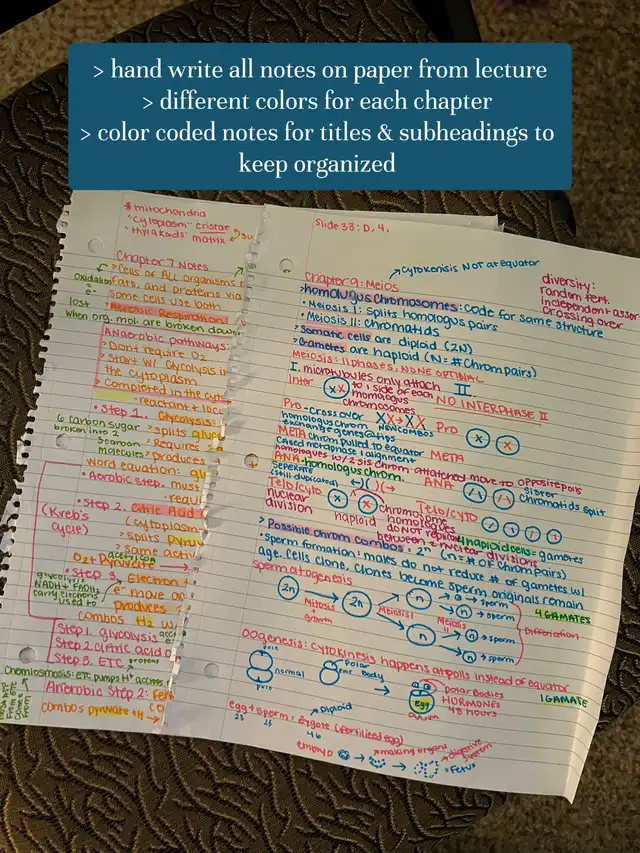 > hand write all notes on paper from lecture
> different colors for each chapter
> color coded notes for titles & subheadings to
keep organized
* mitochondria
"cytoplasm" cristae
"thylakoids" matrix
Chapter 7 Notes
> Cells of ALL organisms
Oxidation
Fats, and proteins via
e-
some cells use both
lost
Aerobic Respiration:
When org. mol. are broken down
Anaerobic pathways:
> Don't require O2
> Start w/ Glycolysis in
the cytoplasm
> Completed in the cyt
reactant +
• Step 1. Glycolysis:
6 carbon sugar > splits
broken into 2
3 carbon > requires 2
molecules > produces
word equation:
• Aerobic step. must
requi
• Step 2. Citric Acid
(Kreb's
cycle)
(cytoplasm
> splits Pyruv
> some activ
O2 + Pyruvate
• Step 3. Electron
glycolysis
NADH + FADH2
carry electrons
used to
e- move
produces
combos H2
Step 1. glycolysis
Step 2. Citric acid
Step 3. ETC
Chemiosmosis: ETC pumps H+ across
Anerobic Step 2: fer
combos pyruvate
Slide 38: D, 4.
Cytokenisis NOT at equator
Chapter 9: Meios
diversity:
random fert.
independent assor
crossing over
> homologus Chromosomes: Code for same structure
• Meiosis I: Splits homologus pairs
• Meiosis II: Chromatids
Somatic cells are diploid (2N)
Gametes are haploid (N = # Chrom pairs)
Meiosis: 11 phases, NONE OPTINAL
I. microtubules only attach II
Inter XX to 1 side of each NO INTERPHASE II
homologus
chromosomes
Pro - cross over XX → XX Pro X X
homologus chrom new combos
exchange genes
META chrom pulled to equator META
called metaphase 1 alignment
homologues w/ 2 sis chrom attatched move to opposite pols
ANA - homologus chrom. ANA sister
seperate chromatids split
(still duplicated)
Telo/Cyto X X chromosome Telo/Cyto
nuclear homologues
division haploid do not replicate 4 haploid cells = gametes
between 2 nuclear divisions
> Possible chrom combos: 2ⁿ (n = # of chrom pairs)
• Sperm formation: males do not reduce # of gametes w/
age. Cells clone, clones become sperm originals remain
spermatogesis
2n → 2n n → n → sperm
Mitosis + growth Meiosis I Meiosis II n → sperm
n n → sperm
n → sperm
4 GAMATES
Differiation
oogenesis: cytokinesis happens at polls instead of equator
normal
Polar
Body
Polar Bodies
Egg
HORMONES
48 hours
1 GAMATE
Diploid
egg + sperm = zygote (fertilized egg)
23 23 46
embyo → making organs → Digestive
System
= Fetus